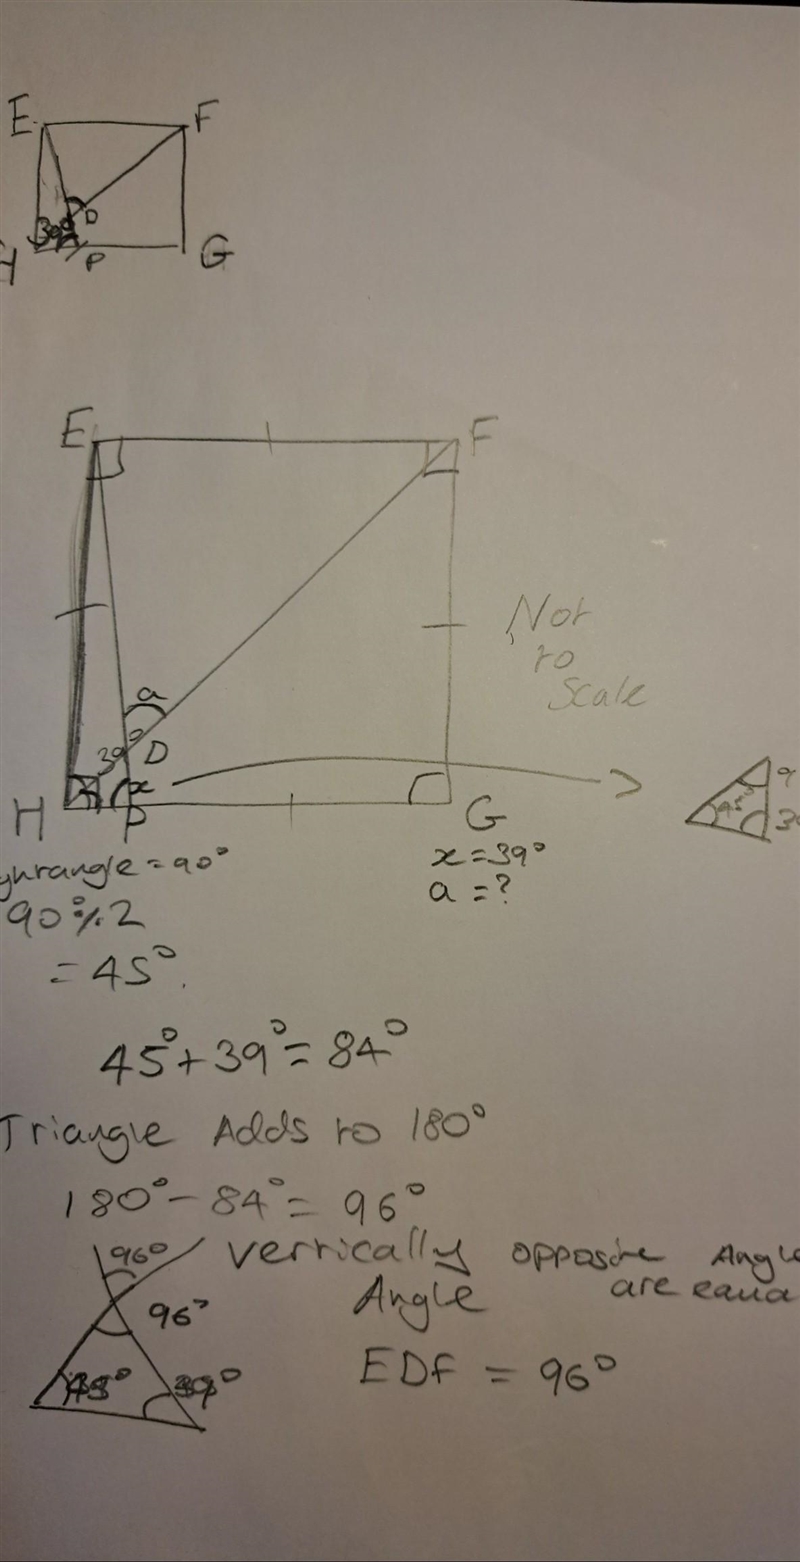 E F
D
39°
P G
E F
a
Not
to
Scale
39° D
x
H P G
x=39°
a=?
angle=90°
90°%2
=45°.
45°+39°=84°
Triangle Adds to 180°
180°-84°=96°
96° vertically opposite Angle
are equa
96° Angle
EDF = 96°
45° 39°